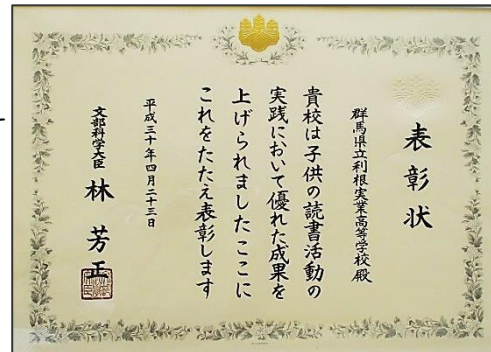 表彰状
群馬県立利根実業高等学校殿
貴校は子供の読書活動の
実践において優れた成果を
上げられましたここに
これをたたえ表彰します
平成三十年四月二十三日
文部科学大臣 林芳正